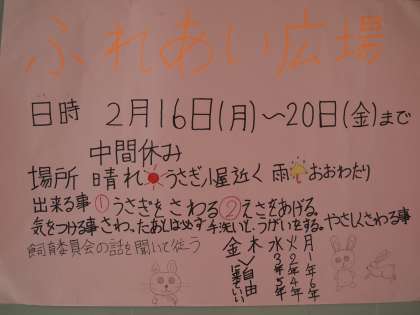 ふれあい広場
日時 2月16日(月)〜20日(金)まで
中間休み
場所 晴れ うさぎ小屋近く 雨 おおわたり
出来る事 ①うさぎをさわる②えさをあげる。
気をつける事 さわったあとは必ず手洗いと、うがいをする。やさしくさわる事
飼育委員会の話を聞いて従う
金 木 水 火 月
自由 3年5年 2年4年 1年6年